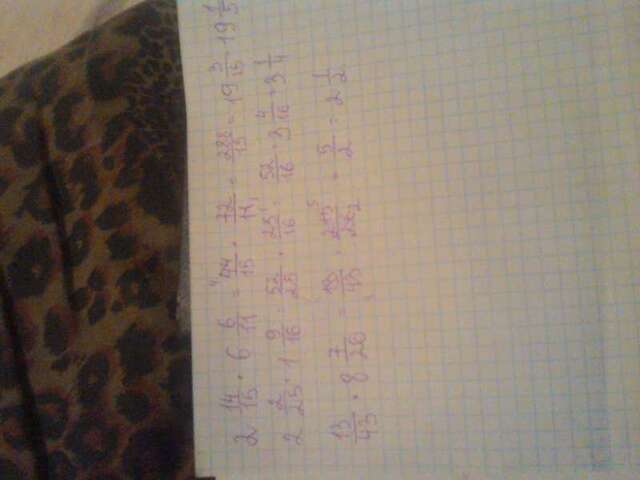 2 14/15 · 6 6/11 = ⁴44/15 · 72/11₁ = 288/15 = 19 3/15 · 19 1/5
2 2/25 · 1 9/16 = 52/25 · 25¹/16 = 52/16 · 3 4/16 · 3 1/4
13/43 · 8 7/26 = 13/43 · 215⁵/26₂ = 5/2 = 2 1/2